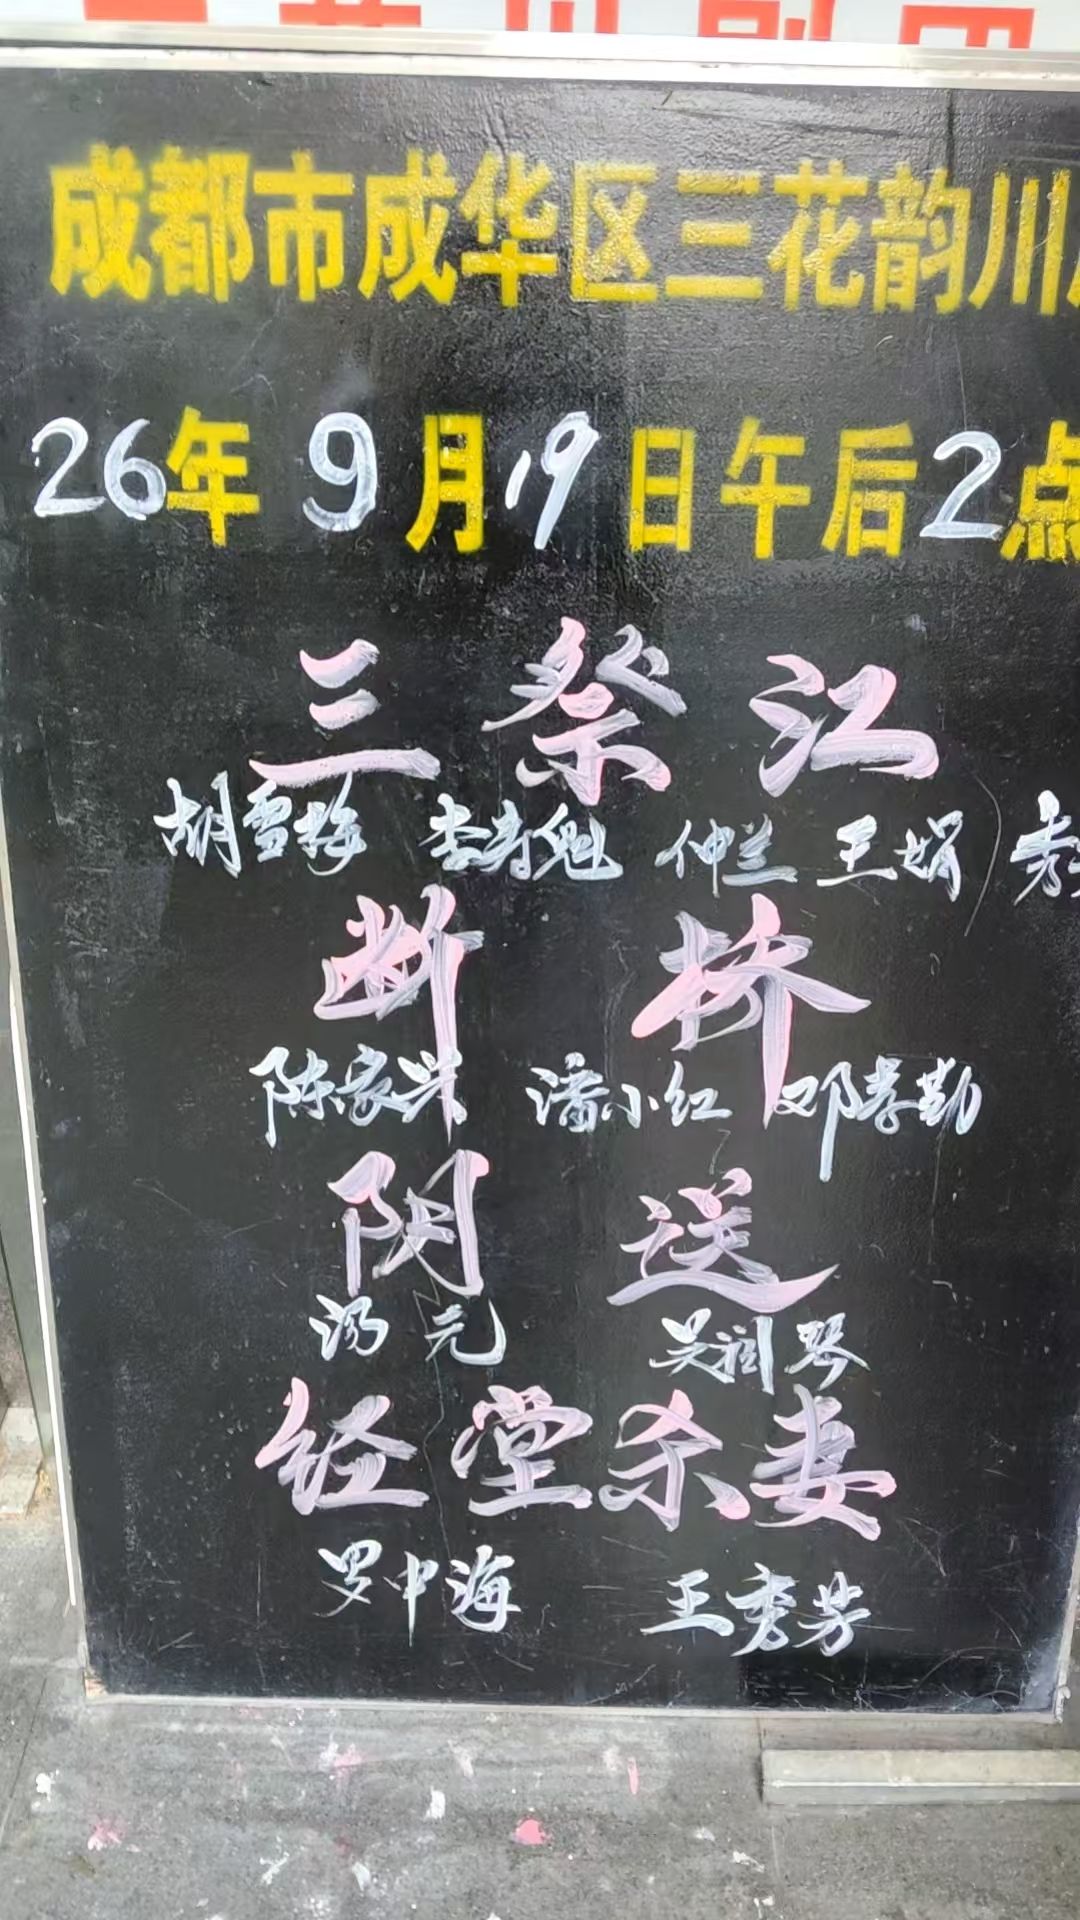 成都市成华区三花韵川
26年9月19日午后2点
三祭江
胡雪梅 李寿魁 仲兰 王娟
断桥
陈家兴 潘小红 邓孝勤
阴送
汤元 吴润琴
经堂杀妻
罗中海 王秀芳